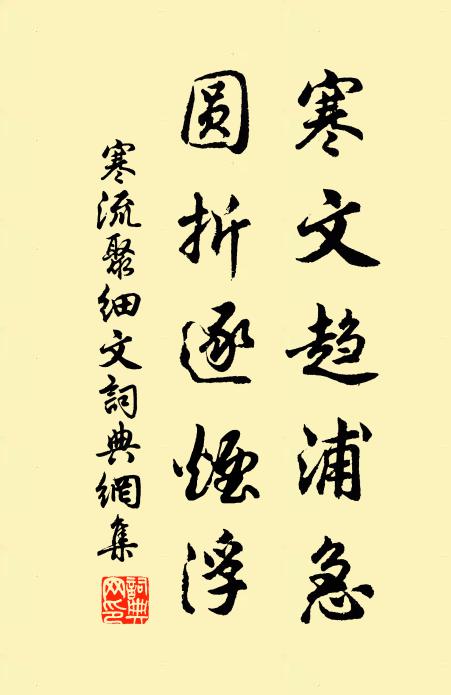 寒文趋浦急
圆折逐煙浮
寒流聚細文詞典網集
詞典网印